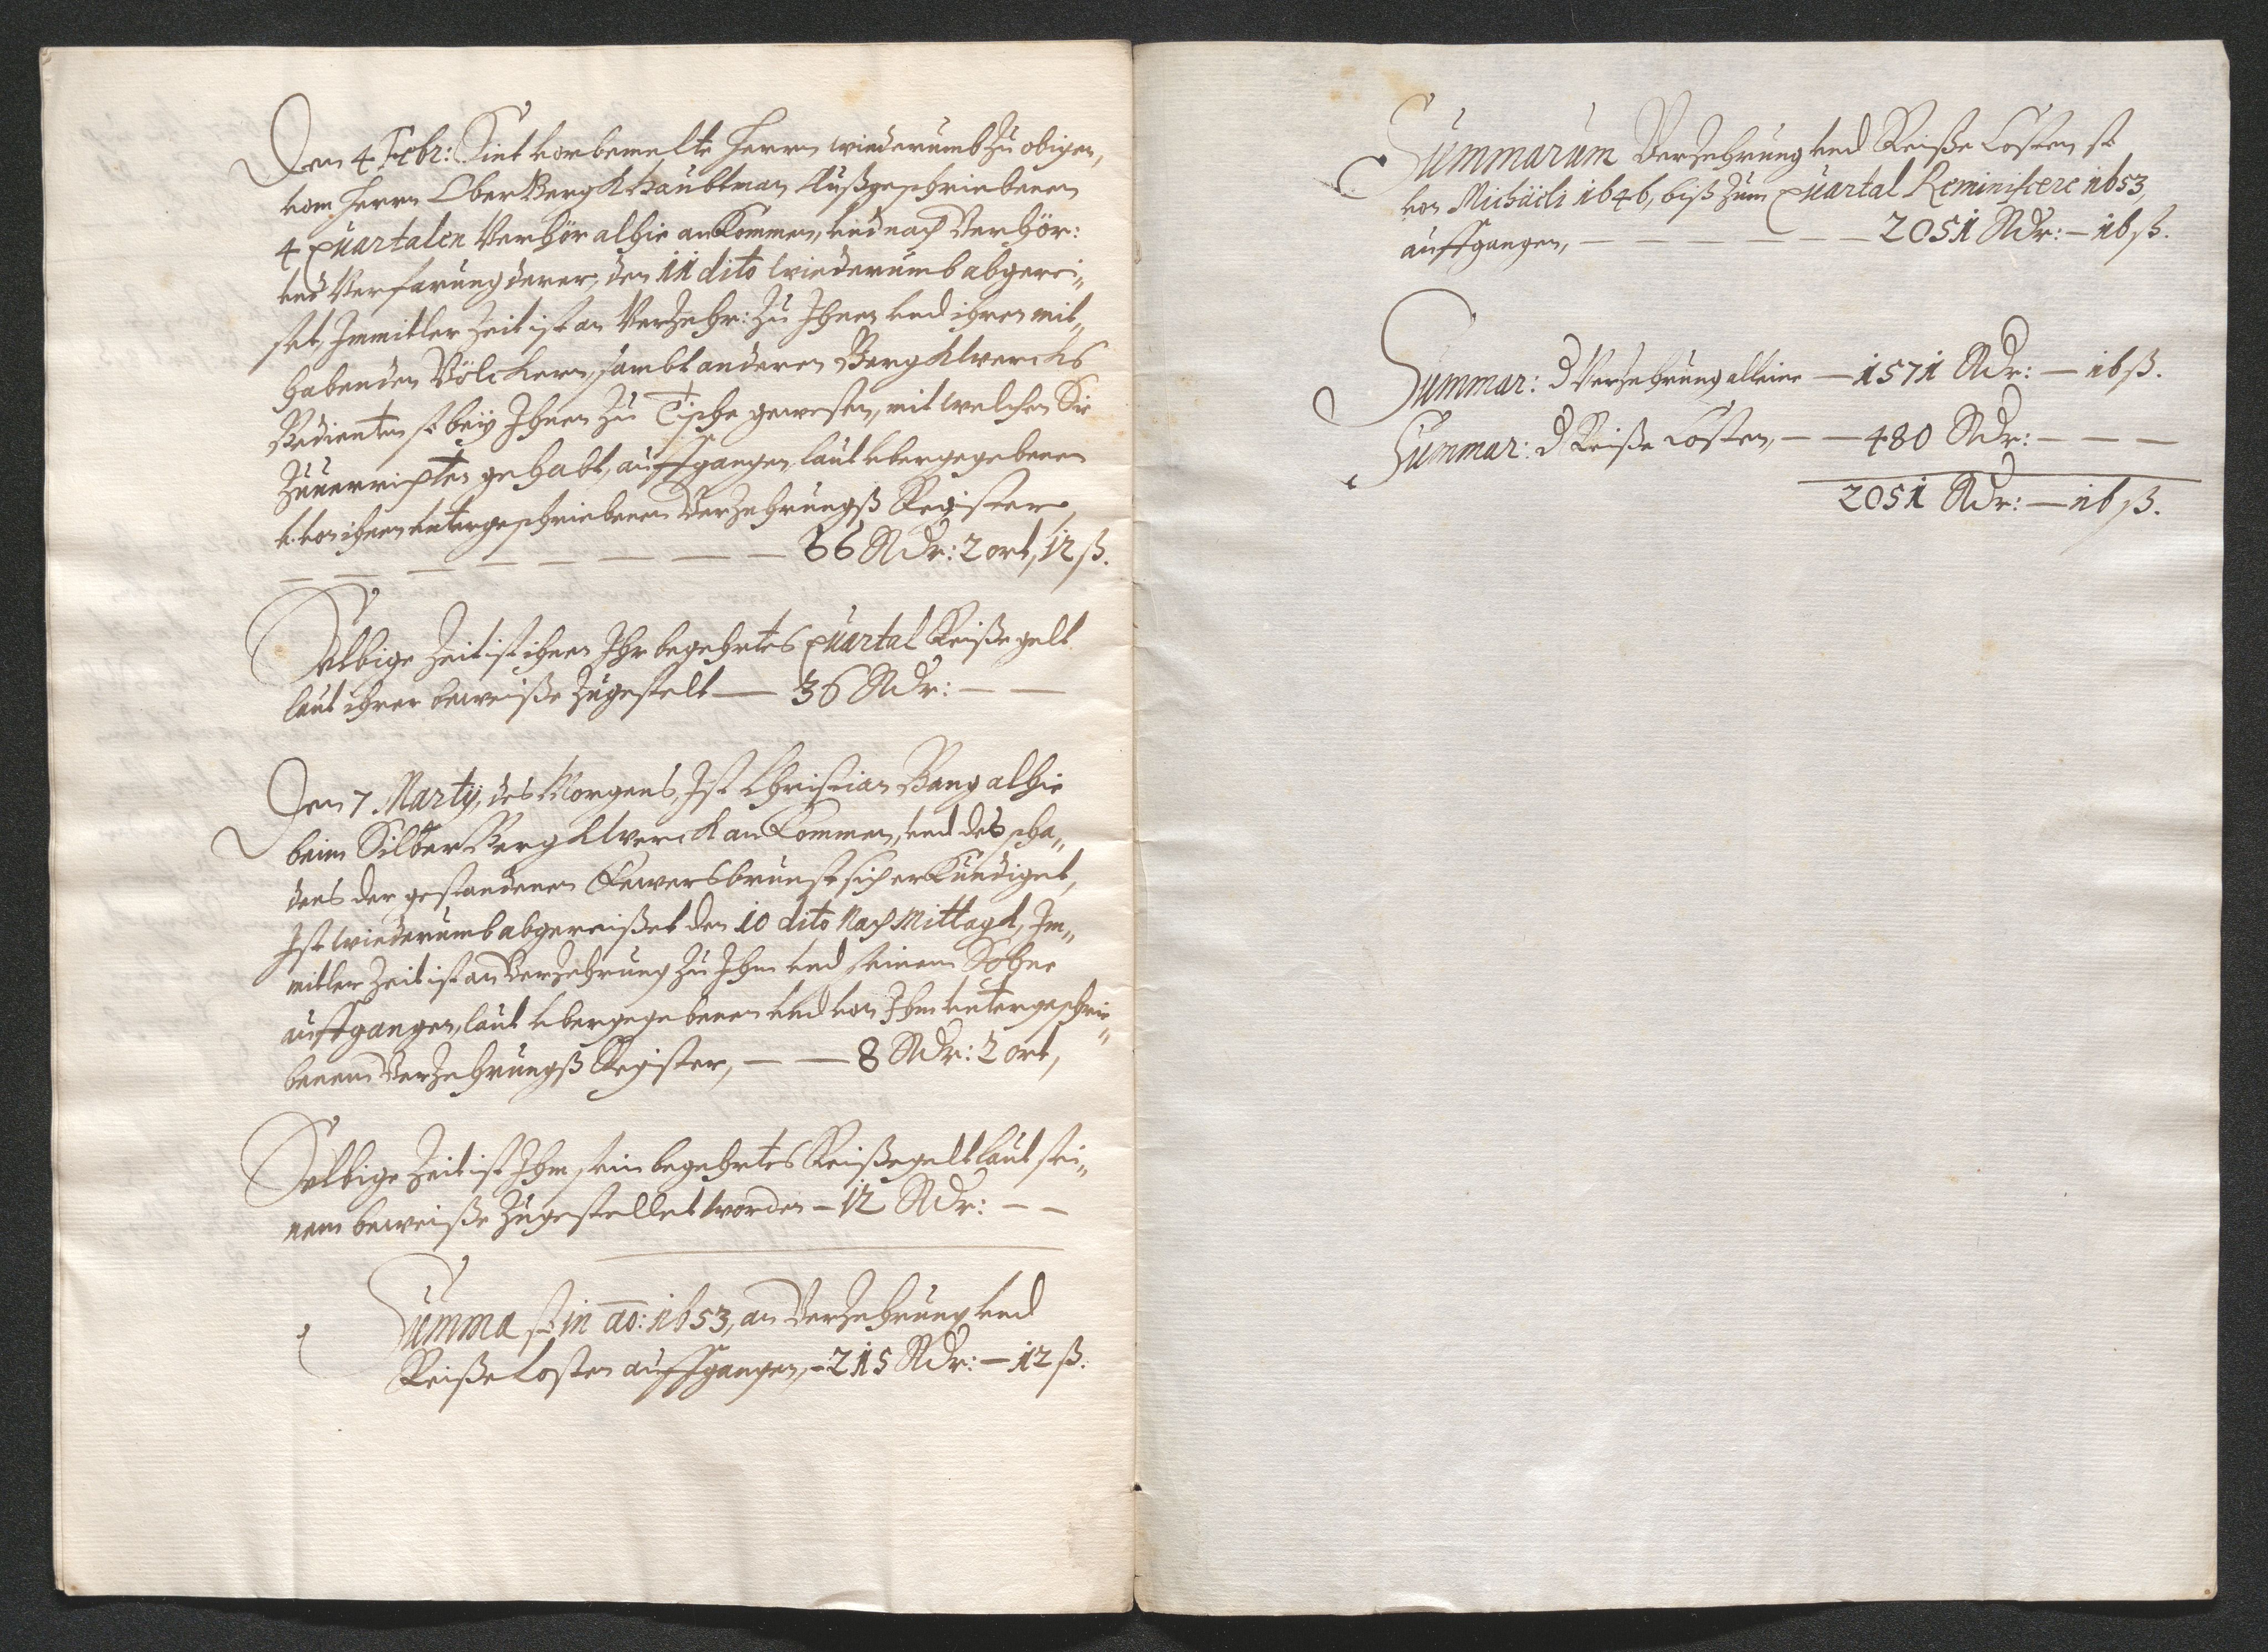 Den 4 Febr: Sint vorbemelte Herrn wiederumb zu obigen,
vom Herrn Ober Bergkhaubtman Außgeschriebenen
4 Quartalen Verhör alhie ankommen, und nach Verhör:
und Verfarung derer, den 11 dito wiederumb abgerei„
set, Inmitler Zeit ist an Verzehr: zu Ihnen und ihren mit„
habenden Völckern, sambt anderen Bergkwercks
Bedienten so beÿ Ihnen zu Tische gewesen, mit welchen Sie
Zuverrichten gehabt, auffgangen, laut ubergegebenen
u. von ihnen untergeschriebenen Verzehrungß Register,
— — — — — — — — 66 Rdr: 2 ort, 12 ß.
Selbige Zeit ist ihnen Ihr begehrtes Quartal Reißegelt
laut ihrer beweiße zugestelt — 36 Rdr: — —
Den 7 Martÿ, des Morgens, Ist Christian Bang alhie
beim Silber Bergkwerck ankommen, und des scha„
dens der gestandenen Fewersbrunst sich erkundiget,
Ist wiederumb abgereißet den 10 dito Nach Mittagk, Im„
mitler Zeit ist an Verzehrung zu Ihm und seinem Sohne
auffgangen, laut ubergegebenen und von Ihm untergeschrie„
benem Verzehrungß Register, — — 8 Rdr: 2 ort,
Selbige Zeit ist Ihm sein begehrtes Reißegelt laut sei„
nem beweiße zugestellet worden — 12 Rdr: — —
Summa so in ao: 1653, an Verzehrung und
Reiße Costen auffgangen, — 215 Rdr: — 12 ß.
Summarum Verzehrung und Reiße Costen so
von Michäeli 1646, biß zum Quartal Reminiscere 1653,
auffgangen, — — — — — — 2051 Rdr: — 16 ß.
Summar: d Verzehrung alleine — 1571 Rdr: — 16 ß.
Summar: d Reiße Costen, — — 480 Rdr: — — —
2051 Rdr: — 16 ß.